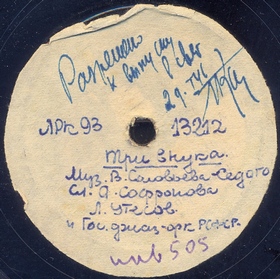 Разрешаю
к выпуску
в свет
29.
АРК 93 13212
Три внука.
Муз. В. Соловьева-Седого
Сл. А. Софронова
Л. Утесов.
и Гос. джаз-орк РСФСР.
инв 505